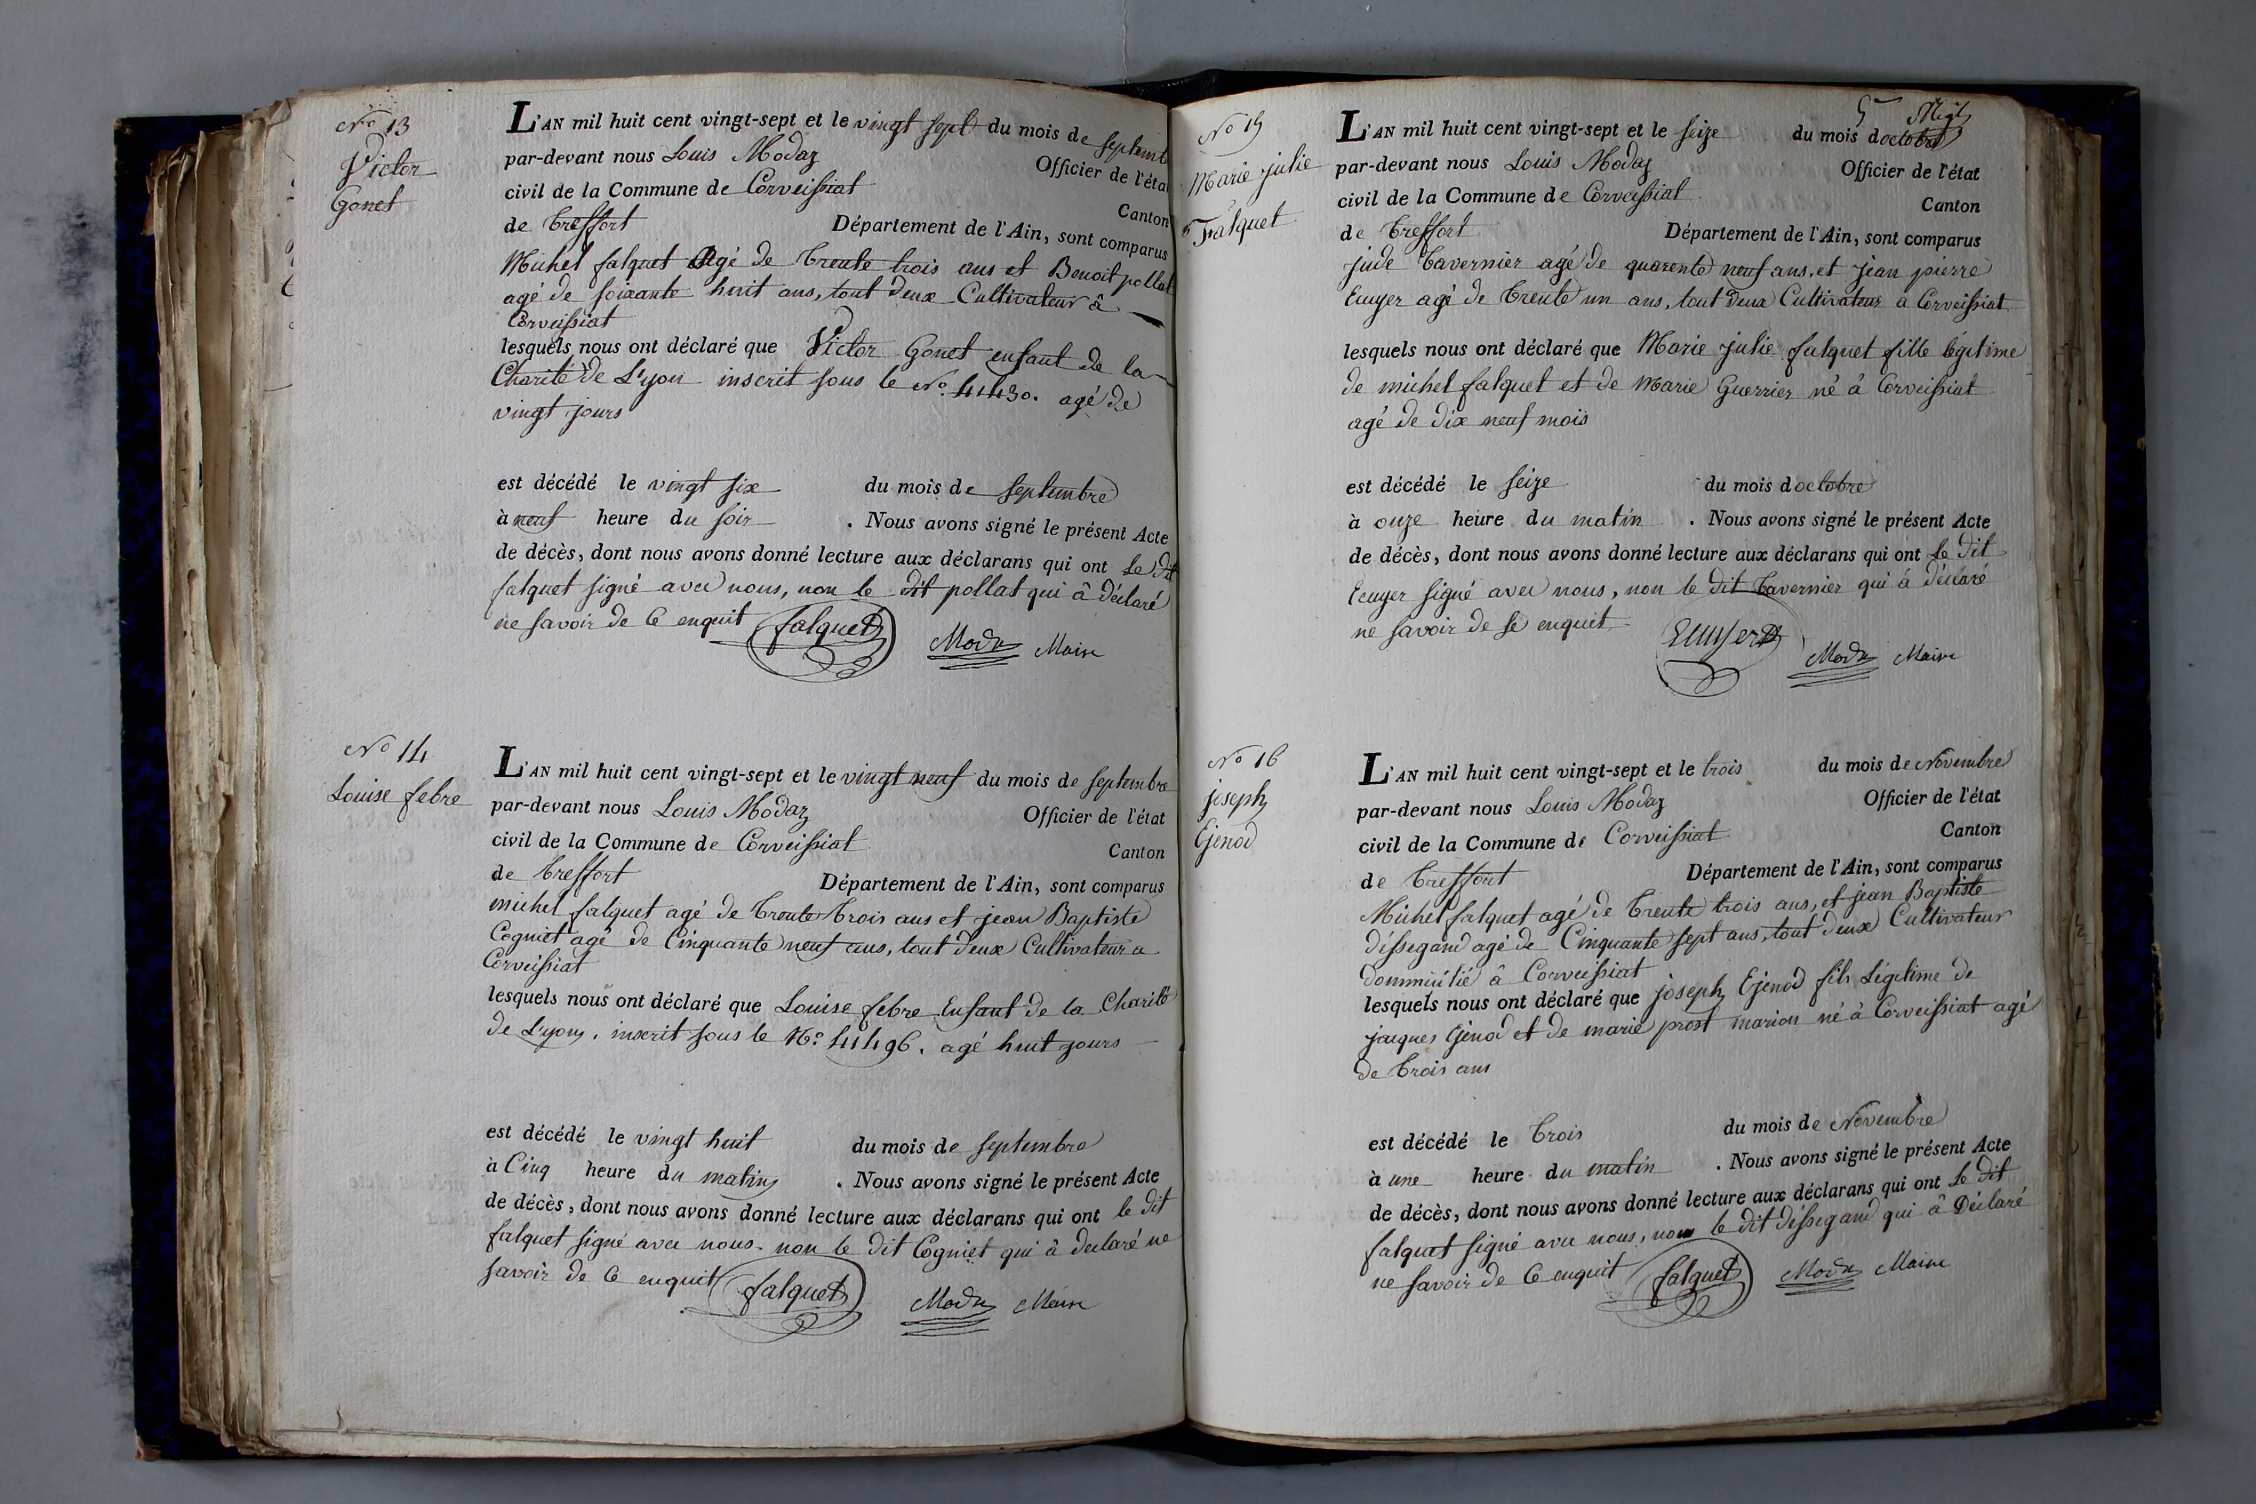 No 13
Victor
Gonet
L'AN mil huit cent vingt-sept et le vingt sept du mois de septemb
par-devant nous Louis Modaz Officier de l'éta
civil de la Commune de Corveissiat Canton
de Treffort Département de l'Ain, sont comparus
Michel falquet Agé de Trente trois ans et Benoit pollat
agé de soixante huit ans, tout deux Cultivateur à
Corveissiat
lesquels nous ont déclaré que Victor Gonet enfant de la
Charité de Lyon inscrit sous le No. 41430. agé de
vingt jours
est décédé le vingt six du mois de septembre
à neuf heure du soir . Nous avons signé le présent Acte
de décès, dont nous avons donné lecture aux déclarans qui ont le dit
falquet signé avec nous, non le dit pollat qui â déclaré
ne savoir de ce enquit falquet Modaz Maire
No 14
Louise febre
L'AN mil huit cent vingt-sept et le vingt neuf du mois de septembre
par-devant nous Louis Modaz Officier de l'état
civil de la Commune de Corveissiat Canton
de Treffort Département de l'Ain, sont comparus
michel falquet agé de Trente Trois ans et jean Baptiste
Cogniet agé de Cinquante neuf ans, tout deux Cultivateur a
Corveissiat
lesquels nous ont déclaré que Louise febre Enfant de la Charité
de Lyon, inscrit sous le No. 41496. agé huit jours
est décédé le vingt huit du mois de septembre
à Cinq heure du matin . Nous avons signé le présent Acte
de décès, dont nous avons donné lecture aux déclarans qui ont le dit
falquet signé avec nous. non le dit Cogniet qui â declaré ne
savoir de ce enquit falquet Modaz Maire
5me
No 15
Marie julie
Falquet
L'AN mil huit cent vingt-sept et le seize du mois doctobre
par-devant nous Louis Modaz Officier de l'état
civil de la Commune de Corveissiat Canton
de Treffort Département de l'Ain, sont comparus
jude Tavernier agé de quarente neuf ans, et jean pierre
Ecuyer agé de Trente un ans, tout deux Cultivateur a Corveissiat
lesquels nous ont déclaré que Marie julie falquet fille légitime
de michel falquet et de Marie Guerrier né â Corveissiat
agé de dix neuf mois
est décédé le seize du mois doctobre
à onze heure du matin . Nous avons signé le présent Acte
de décès, dont nous avons donné lecture aux déclarans qui ont le dit
Ecuyer signé avec nous, non le dit Tavernier qui â déclaré
ne savoir de se enquit Ecuyer Modaz Maire
No 16
joseph
Ejenod
L'AN mil huit cent vingt-sept et le trois du mois de Novembre
par-devant nous Louis Modaz Officier de l'état
civil de la Commune de Corveissiat Canton
de Treffort Département de l'Ain, sont comparus
Michel falquet agé de Trente trois ans, et jean Baptiste
déssegand agé de Cinquante sept ans, tout deux Cultivateur
dommicilié â Corveissiat
lesquels nous ont déclaré que joseph Ejenod fils Légitime de
jacques Ejenod et de marie prost marion né à Corveissiat agé
de Trois ans
est décédé le Trois du mois de Novembre
à une heure du matin . Nous avons signé le présent Acte
de décès, dont nous avons donné lecture aux déclarans qui ont le dit
falquet signé avec nous, non le dit déssegand qui â Déclaré
ne savoir de Ce enquit falquet Modaz Maire